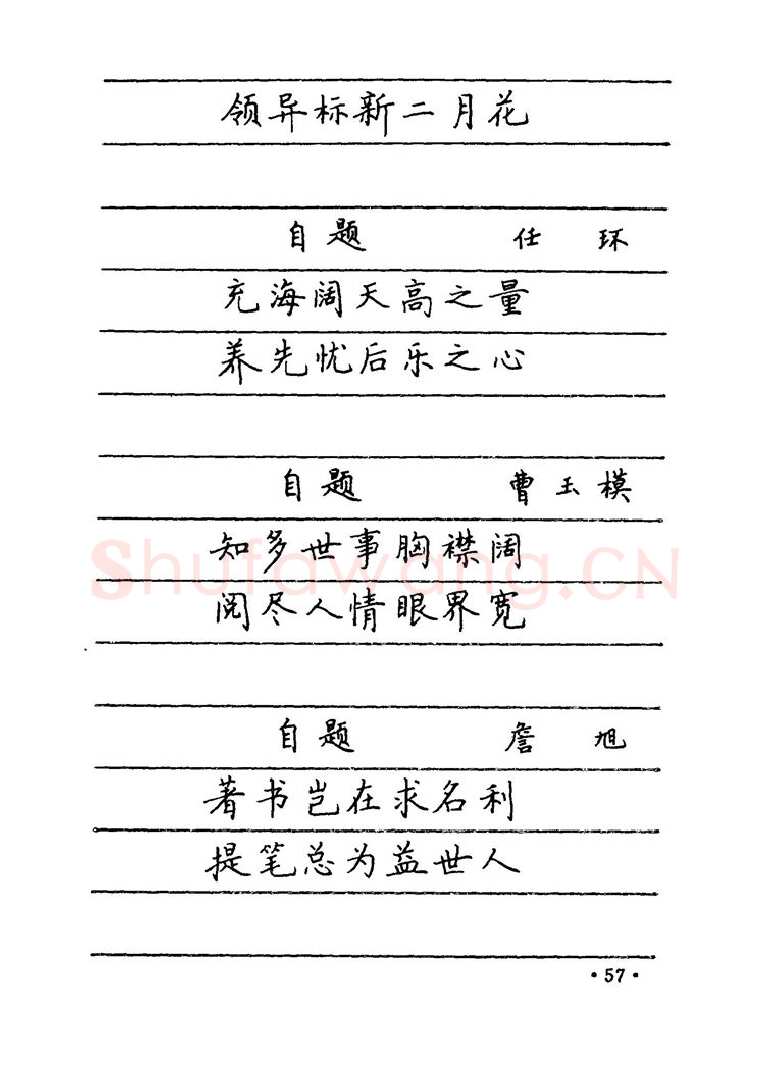 领异标新二月花
自题 任环
充海阔天高之量
养先忧后乐之心
自题 曹玉模
知多世事胸襟阔
阅尽人情眼界宽
shufawang.CN
自题 詹旭
著书岂在求名利
提笔总为益世人
·57·